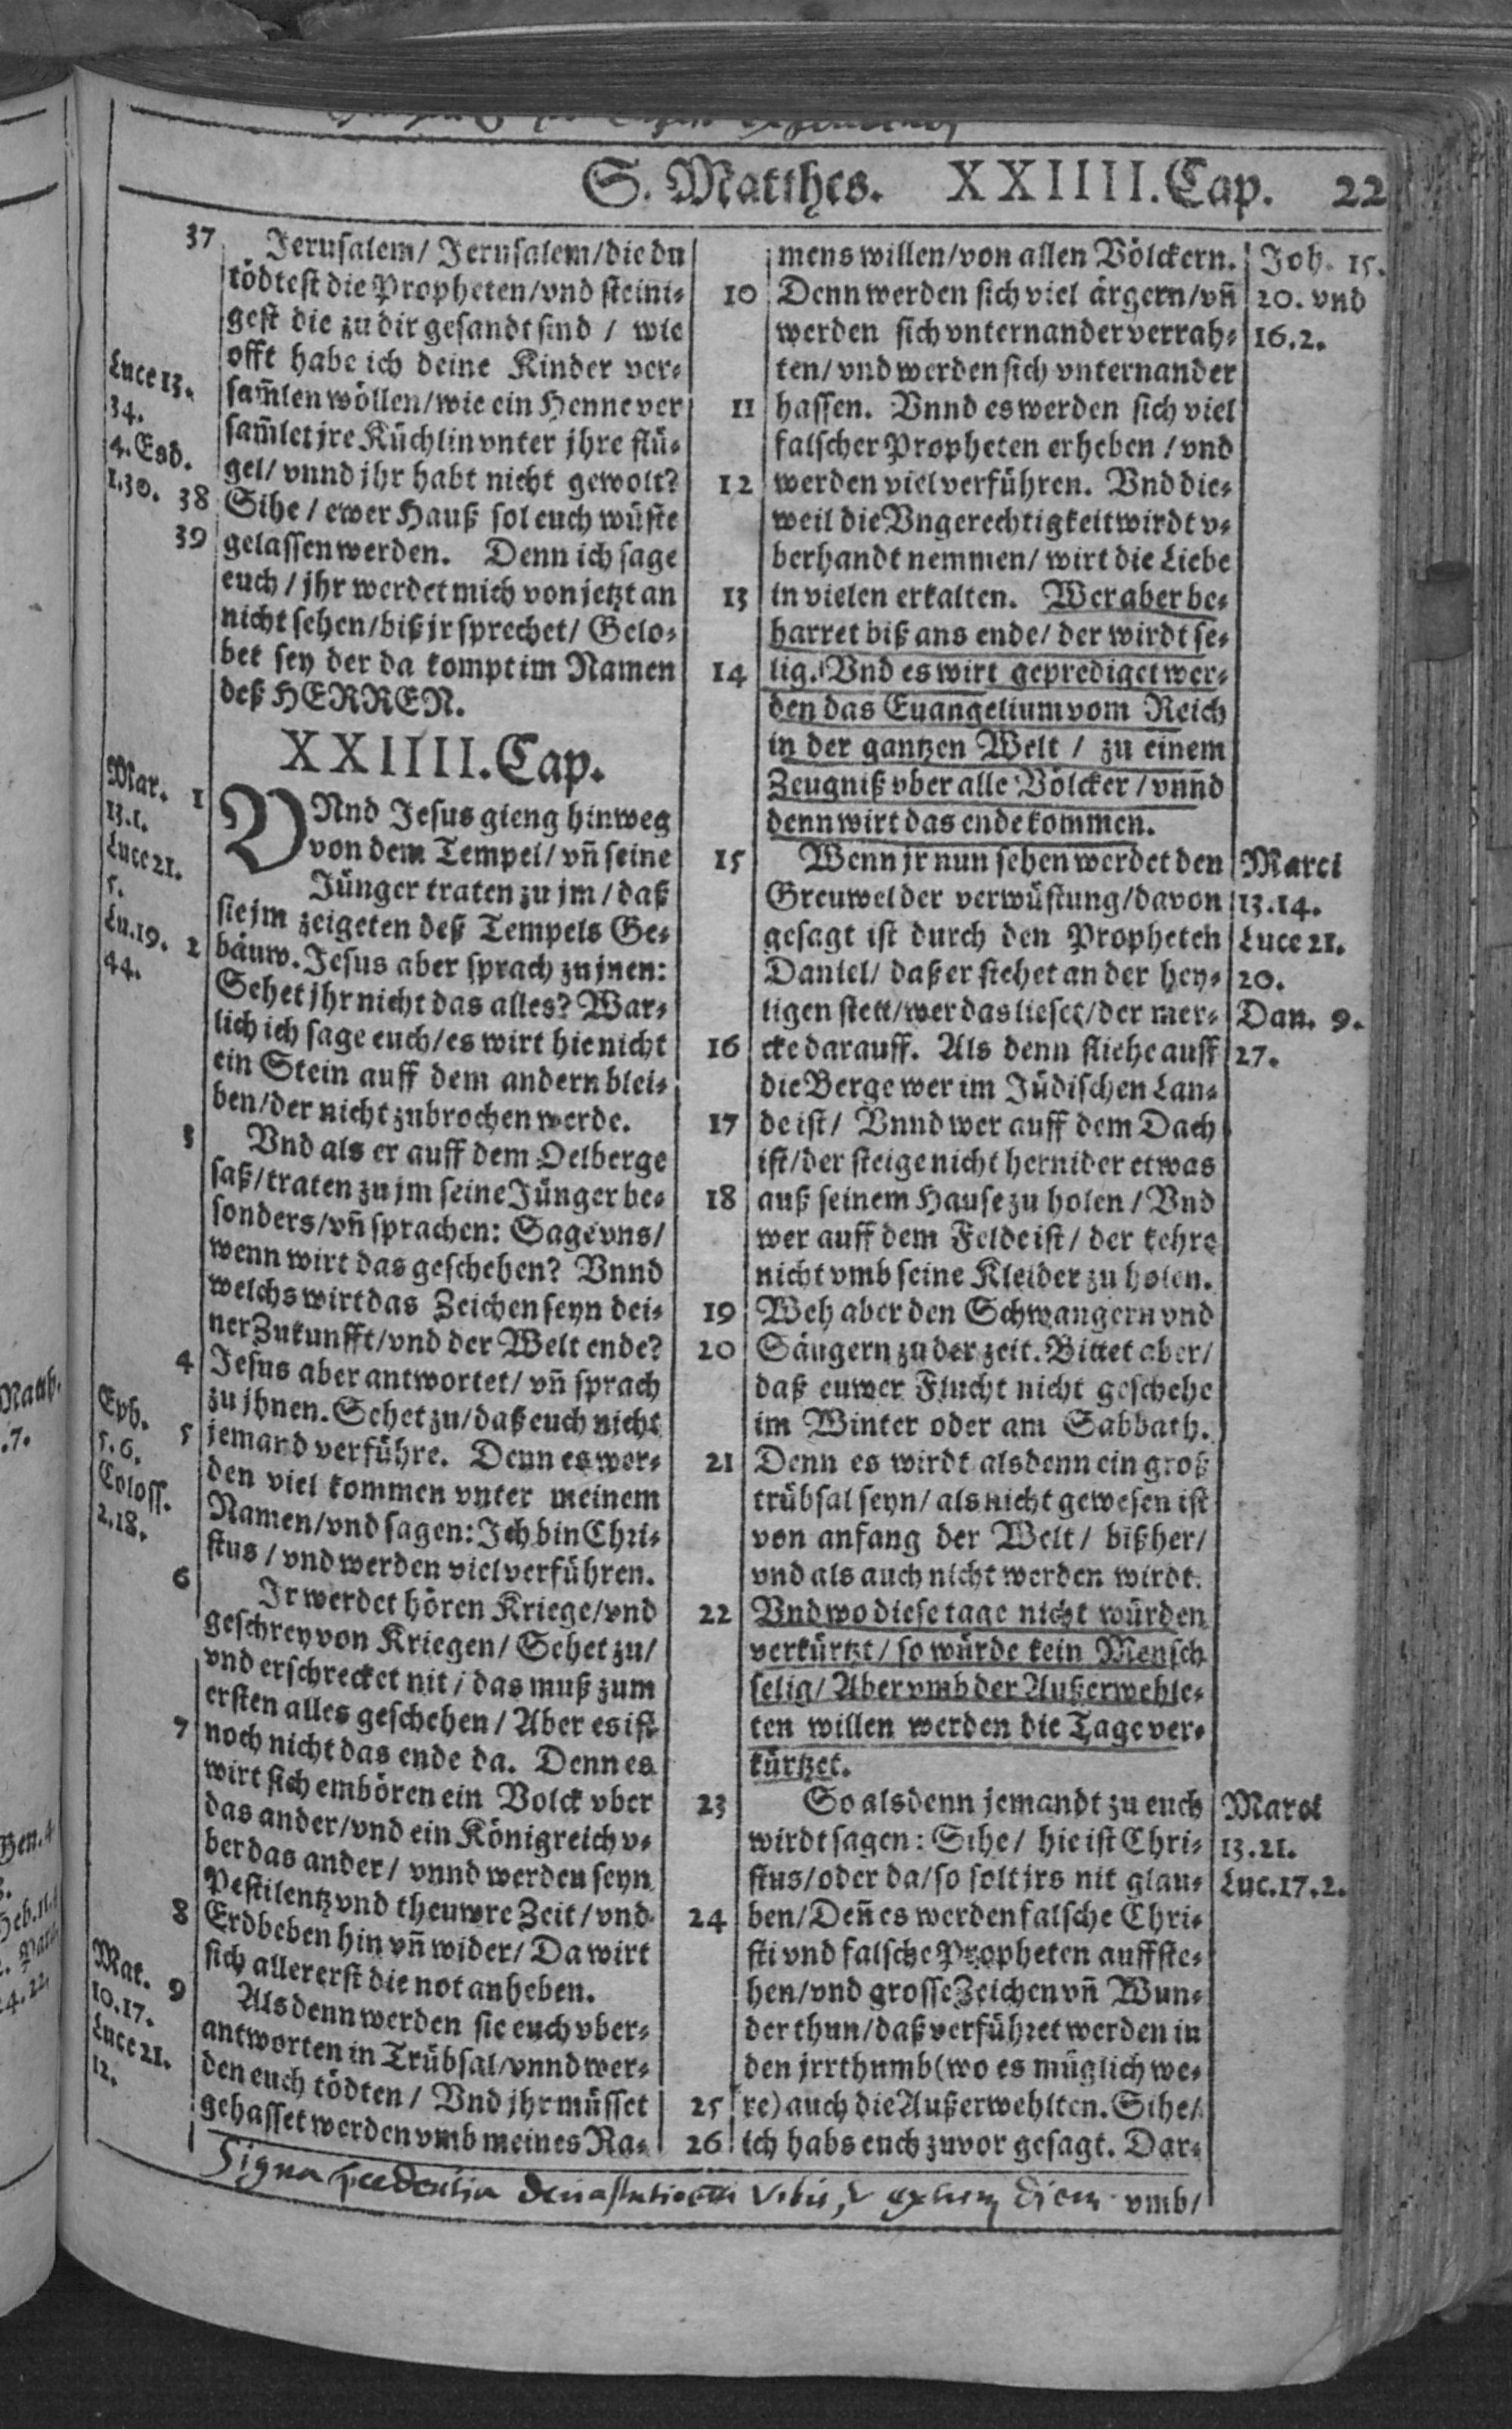 S. Matthes. XXIIII. Cap. 22
37 Jerusalem/ Jerusalem/ die du
tödtest die Propheten/ vnd steini-
gest die zu dir gesandt sind / wie
offt habe ich deine Kinder ver-
sam̃len wöllen/ wie ein Henne ver
sam̃let jre Küchlin vnter jhre flü-
gel/ vnnd jhr habt nicht gewolt?
38 Sihe / ewer Hauß sol euch wüste
39 gelassen werden. Denn ich sage
euch / jhr werdet mich von jetzt an
nicht sehen/ biß jr sprechet/ Gelo-
bet sey der da kompt im Namen
deß HERREN.
Luce 13.
34.
4. Esd.
1.30.
XXIIII. Cap.
1 VNnd Jesus gieng hinweg
von dem Tempel/ vn̄ seine
Jünger traten zu jm / daß
sie jm zeigeten deß Tempels Ge-
2 bäuw. Jesus aber sprach zu jnen:
Sehet jhr nicht das alles? War-
lich ich sage euch/ es wirt hie nicht
ein Stein auff dem andern blei-
ben/ der nicht zubrochen werde.
3 Vnd als er auff dem Oelberge
saß/ traten zu jm seine Jünger be-
sonders/ vn̄ sprachen: Sage vns/
wenn wirt das geschehen? Vnnd
welchs wirt das Zeichen seyn dei-
ner Zukunfft/ vnd der Welt ende?
4 Jesus aber antwortet/ vn̄ sprach
zu jhnen. Sehet zu/ daß euch nicht
5 jemand verführe. Denn es wer-
den viel kommen vnter meinem
Namen/ vnd sagen: Ich bin Chri-
stus / vnd werden viel verführen.
6 Ir werdet hören Kriege/ vnd
geschrey von Kriegen/ Sehet zu/
vnd erschrecket nit / das muß zum
ersten alles geschehen / Aber es ist
7 noch nicht das ende da. Denn es
wirt sich embören ein Volck vber
das ander/ vnd ein Königreich v-
ber das ander/ vnnd werden seyn
Pestilentz vnd theuwre Zeit / vnd
8 Erdbeben hin vn̄ wider/ Da wirt
sich allererst die not anheben.
9 Als denn werden sie euch vber-
antworten in Trübsal/ vnnd wer-
den euch tödten / Vnd jhr müsset
gehasset werden vmb meines Na-
Mar.
13.1.
Luce 21.
5.
Lu.19.
44.
Eph.
5.6.
Coloss.
2.18.
Mat.
10.17.
Luce 21.
12.
mens willen/ von allen Völckern.
10 Denn werden sich viel ärgern/ vn̄
werden sich vnternander verrah-
ten/ vnd werden sich vnternander
11 hassen. Vnnd es werden sich viel
falscher Propheten erheben / vnd
12 werden viel verführen. Vnd die-
weil die Vngerechtigkeit wirdt v-
berhandt nemmen/ wirt die Liebe
13 in vielen erkalten. Wer aber be-
harret biß ans ende/ der wirdt se-
14 lig. Vnd es wirt geprediget wer-
den das Euangelium vom Reich
in der gantzen Welt / zu einem
Zeugniß vber alle Völcker / vnnd
denn wirt das ende kommen.
15 Wenn jr nun sehen werdet den
Greuwel der verwüstung/ davon
gesagt ist durch den Propheten
Daniel/ daß er stehet an der hey-
ligen stett/ wer das lieset/ der mer-
16 cke darauff. Als denn fliehe auff
die Berge wer im Jüdischen Lan-
17 de ist/ Vnnd wer auff dem Dach
ist/ der steige nicht hernider etwas
18 auß seinem Hause zu holen / Vnd
wer auff dem Felde ist/ der kehre
nicht vmb seine Kleider zu holen.
19 Weh aber den Schwangern vnd
20 Säugern zu der zeit. Bittet aber/
daß euwer Flucht nicht geschehe
im Winter oder am Sabbath.
21 Denn es wirdt alsdenn ein groß
trübsal seyn/ als nicht gewesen ist
von anfang der Welt/ bißher/
vnd als auch nicht werden wirdt.
22 Vnd wo diese tage nicht würden
verkürtzt/ so würde kein Mensch
selig/ Aber vmb der Außerwehle-
ten willen werden die Tage ver-
kürtzet.
23 So alsdenn jemandt zu euch
wirdt sagen: Sihe/ hie ist Chri-
stus/ oder da/ so solt jrs nit glau-
24 ben/ Den̄ es werden falsche Chri-
sti vnd falsche Propheten auffste-
hen/ vnd grosse Zeichen vn̄ Wun-
der thun/ daß verführet werden in
den jrrthumb (wo es müglich we-
25 re) auch die Außerwehlten. Sihe/
26 ich habs euch zuvor gesagt. Dar-
vmb/
Joh. 15.
20. vnd
16.2.
Marci
13.14.
Luce 21.
20.
Dan. 9.
27.
Marci
13.21.
Luc.17.2.
Signa
Matth.
.7.
Gen.4